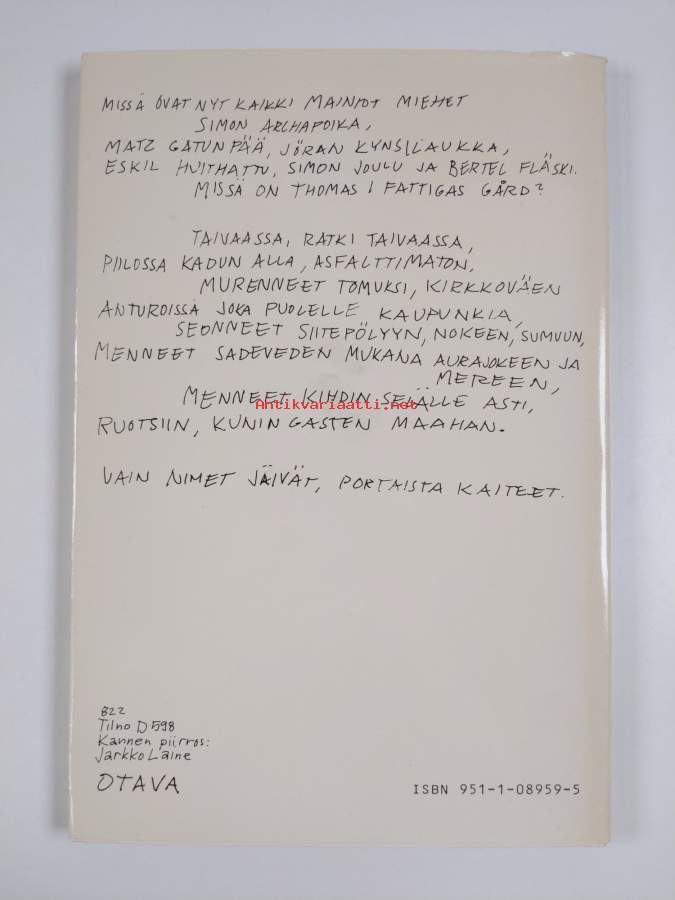 MISSÄ OVAT NYT KAIKKI MAINIOT MIEHET
SIMON ARCHAPOIKA,
MATZ GATUN PÄÄ, JÖRAN KYNSILAUKKA,
ESKIL HUITHATTU, SIMON JOULU JA BERTEL FLÄSKI.
MISSÄ ON THOMAS I FATTIGAS GÅRD?
TAIVAASSA, RATKI TAIVAASSA,
PIILOSSA KADUN ALLA, ASFALTTIMATON,
MURENNEET TOMUKSI, KIRKKOVÄEN
ANTUROISSA JOKA PUOLELLE KAUPUNKIA,
SEONNEET SIITEPÖLYYN, NOKEEN, SUMUUN,
MENNEET SADEVEDEN MUKANA AURAJOKEEN JA
MEREEN,
MENNEET KIHDIN SELÄLLE ASTI,
Antikvariaatti.net
RUOTSIIN, KUNINGASTEN MAAHAN.
VAIN NIMET JÄIVÄT, PORTAISTA KAITEET.
822
Tilno D 598
Kannen piirros:
Jarkko Laine
OTAVA
ISBN 951-1-08959-5